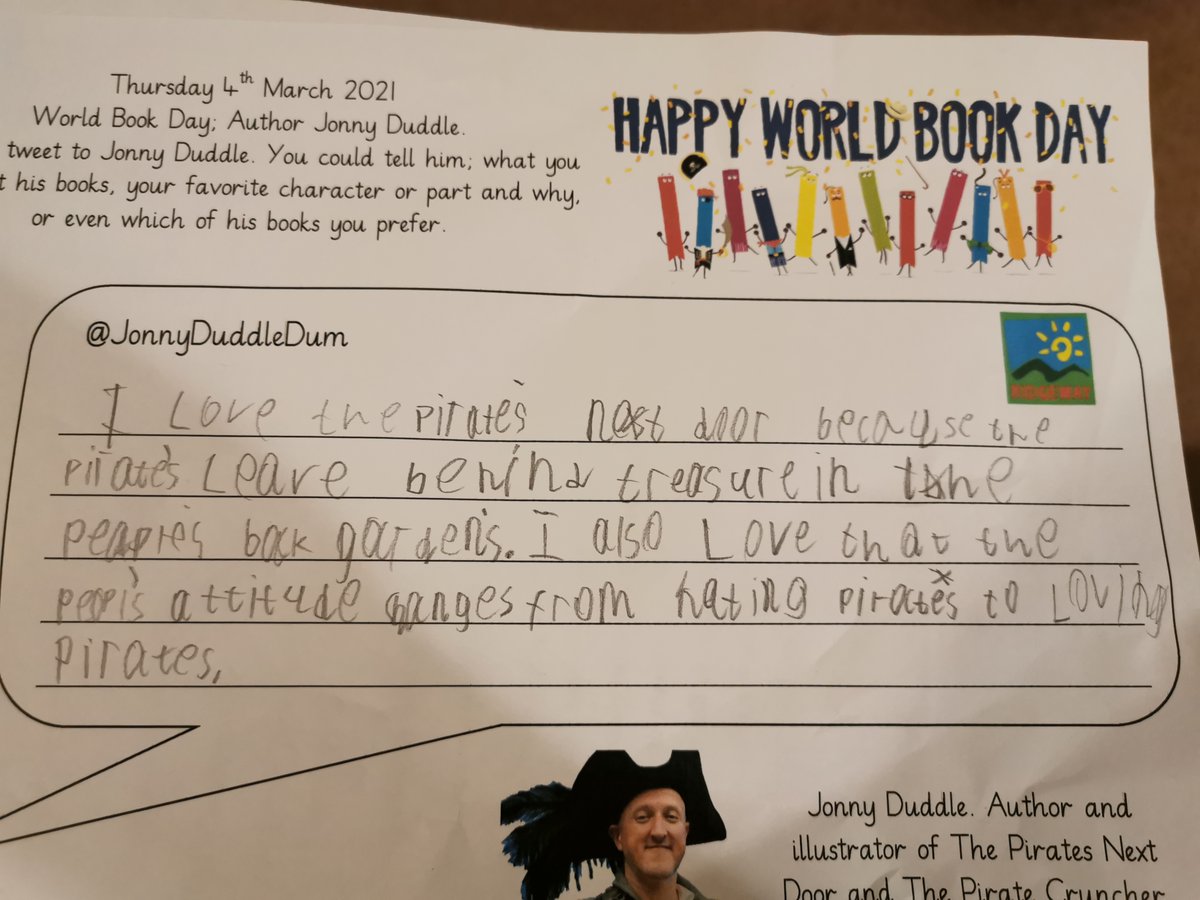 Thursday 4th March 2021
World Book Day; Author Jonny Duddle.
tweet to Jonny Duddle. You could tell him; what you
t his books, your favorite character or part and why,
or even which of his books you prefer.
HAPPY WORLD BOOK DAY
@JonnyDuddleDum
I Love the pirate's nest door because the
pirate's Leave behind treasure in the
peaple's back garden's. I also Love that the
peopl's attitude ganges from hating pirates to Loving
pirates.
Jonny Duddle. Author and
illustrator of The Pirates Next
Door and The Pirate Cruncher